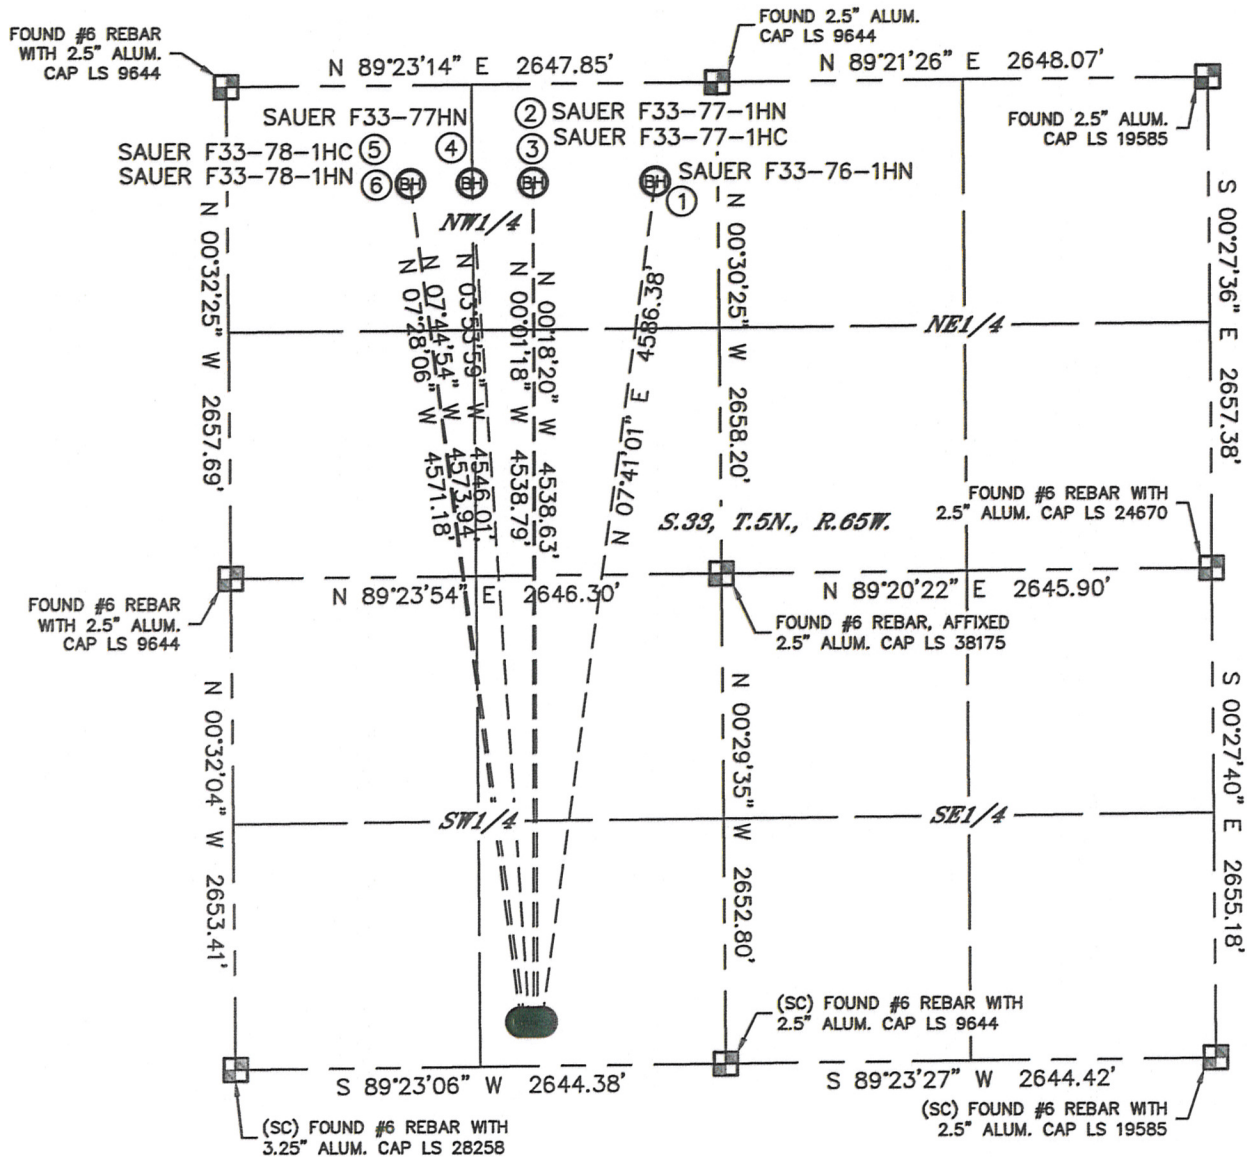 FOUND #6 REBAR
WITH 2.5" ALUM.
CAP LS 9644
FOUND 2.5" ALUM.
CAP LS 9644
N 89°23'14" E 2647.85'
N 89°21'26" E 2648.07'
FOUND 2.5" ALUM.
CAP LS 19585
SAUER F33-77HN
② SAUER F33-77-1HN
③ SAUER F33-77-1HC
SAUER F33-78-1HC ⑤
④
SAUER F33-78-1HN ⑥
BH
BH
BH
BH
SAUER F33-76-1HN
①
NW1/4
N 00°32'25" W 2657.69'
N 07°28'06" W 4571.18'
N 07°44'54" W 4573.94'
N 03°53'59" W 4546.01'
N 00°01'18" W 4538.79'
N 00°18'20" W 4538.63'
N 07°41'01" E 4586.38'
N 00°30'25" W 2658.20'
NE1/4
S 00°27'36" E 2657.38'
S.33, T.5N., R.65W.
FOUND #6 REBAR WITH
2.5" ALUM. CAP LS 24670
N 89°23'54" E 2646.30'
N 89°20'22" E 2645.90'
FOUND #6 REBAR
WITH 2.5" ALUM.
CAP LS 9644
FOUND #6 REBAR, AFFIXED
2.5" ALUM. CAP LS 38175
N 00°32'04" W 2653.41'
SW1/4
N 00°29'35" W 2652.80'
SE1/4
S 00°27'40" E 2655.18'
(SC) FOUND #6 REBAR WITH
2.5" ALUM. CAP LS 9644
S 89°23'06" W 2644.38'
S 89°23'27" W 2644.42'
(SC) FOUND #6 REBAR WITH
3.25" ALUM. CAP LS 28258
(SC) FOUND #6 REBAR WITH
2.5" ALUM. CAP LS 19585